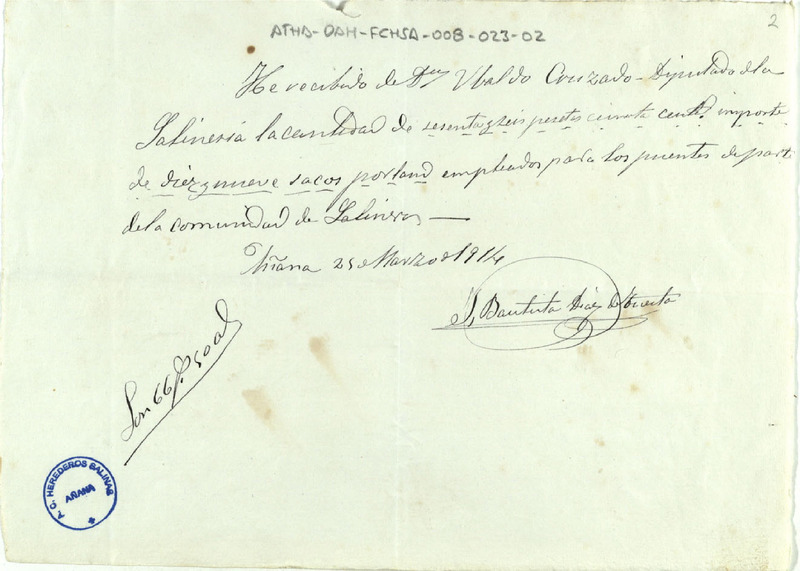 ATHA-DAH-FCHSA-008-023-02
2
He recibido de Dn Ubaldo Cruzado Diputado de la
Salineria la cantidad de sesenta y seis pesetas cincuenta cent importe
de diez y nueve sacos porland empleados para los puentes de parte
de la comunidad de Salineros
Añana 25 de Marzo de 1914
J. Bautista Diaz de Tuesta
Son 66 P. 50 cs
P. C. HEREDEROS SALINAS
AÑANA